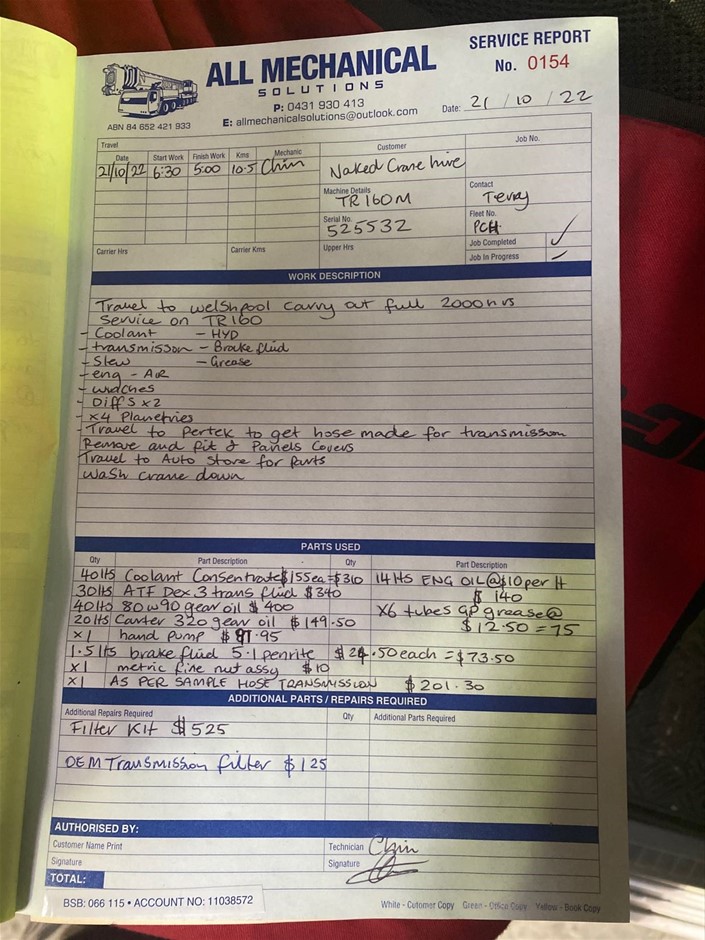 ALL MECHANICAL
SOLUTIONS
P: 0431 930 413
E: allmechanicalsolutions@outlook.com
ABN 84 652 421 933
SERVICE REPORT
No. 0154
Date: 21 / 10 / 22
Travel
Customer
Job No.
Date Start Work Finish Work Kms Mechanic
21/10/22 6:30 5:00 10.5 Chin
Naked Crane hire
Machine Details
TR160M
Contact
Terry
Serial No.
525532
Fleet No.
PCH
Job Completed ✓
Job In Progress
Carrier Hrs Carrier Kms Upper Hrs
WORK DESCRIPTION
Travel to welshpool carry out full 2000hrs
Service on TR160
- Coolant - HYD
- transmission - Brake fluid
- Slew - Grease
- eng - AIR
- winches
- Diffs x2
- x4 Planetries
- Travel to Pertek to get hose made for transmission
Remove and fit Panels Covers
Travel to Auto Store for parts
wash crane down
PARTS USED
Qty Part Description Qty Part Description
40lts Coolant Consentrate $155ea = $310 14lts ENG OIL @ $10 per lt
30lts ATF Dex.3 trans fluid $340 $140
40lts 80w90 gear oil $400 x6 tubes GP grease @
20lts Canter 320 gear oil $149.50 $12.50 = 75
x1 hand pump $91.95
1.5lts brake fluid 5.1 penrite $24.50 each = $73.50
x1 metric fine nut assy $10
x1 AS PER SAMPLE HOSE TRANSMISSION $201.30
ADDITIONAL PARTS / REPAIRS REQUIRED
Additional Repairs Required Qty Additional Parts Required
Filter Kit $525
OEM Transmission filter $125
AUTHORISED BY:
Customer Name Print Technician Chin
Signature Signature
TOTAL:
BSB: 066 115 • ACCOUNT NO: 11038572
White - Cutomer Copy Green - Office Copy Yellow - Book Copy